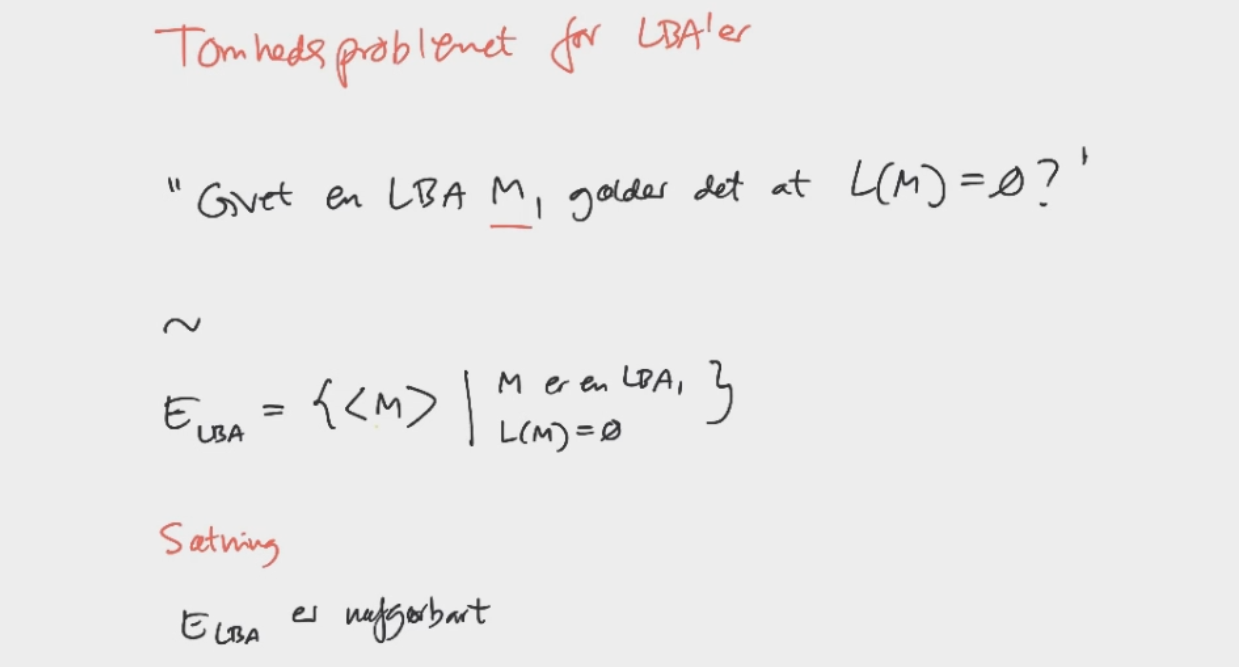 Tomhedsproblemet for LBA'er
"Givet en LBA M, gælder det at L(M) = ∅?"
~
E_LBA = {<M> | M er en LBA,
L(M) = ∅ }
Sætning
E_LBA er uafgørbart